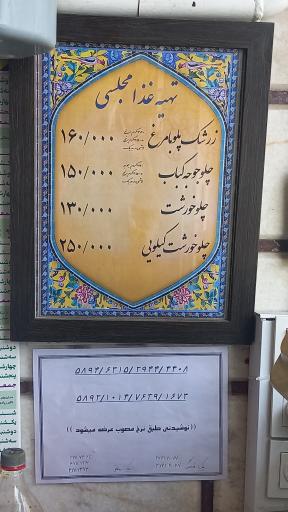 تهیه غذا مجلسی
زرشک پلو با مرغ ۱۶۰/۰۰۰
چلو جوجه کباب ۱۵۰/۰۰۰
چلو خورشت ۱۳۰/۰۰۰
چلو خورشت کیلویی ۲۵۰/۰۰۰
۵۸۹۴/۶۳۱۵/۲۹۴۴/۴۴۰۸
۵۸۹۲/۱۰۱۴/۷۶۳۹/۱۶۷۳
(( نوشیدنی طبق نرخ مصوب عرضه میشود ))